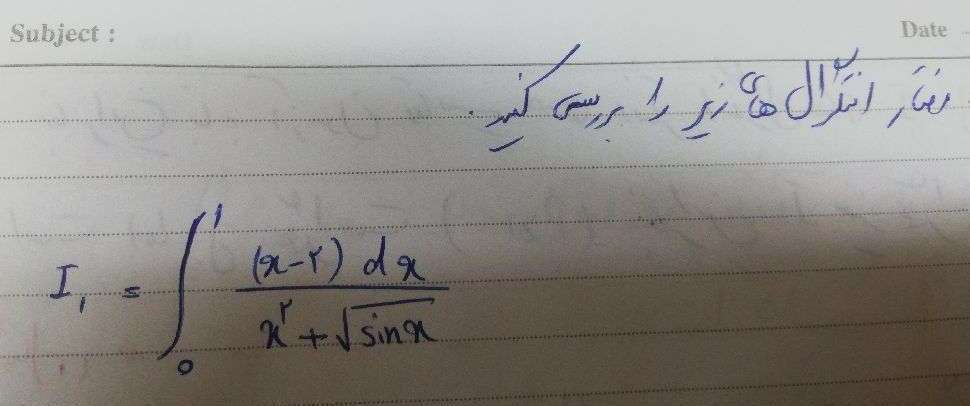 Subject :
Date
رفتار انتگرال های زیر را بررسی کنید.
I₁ = ∫₀¹ (x-۲) dx / (x^۲ + √sinx)